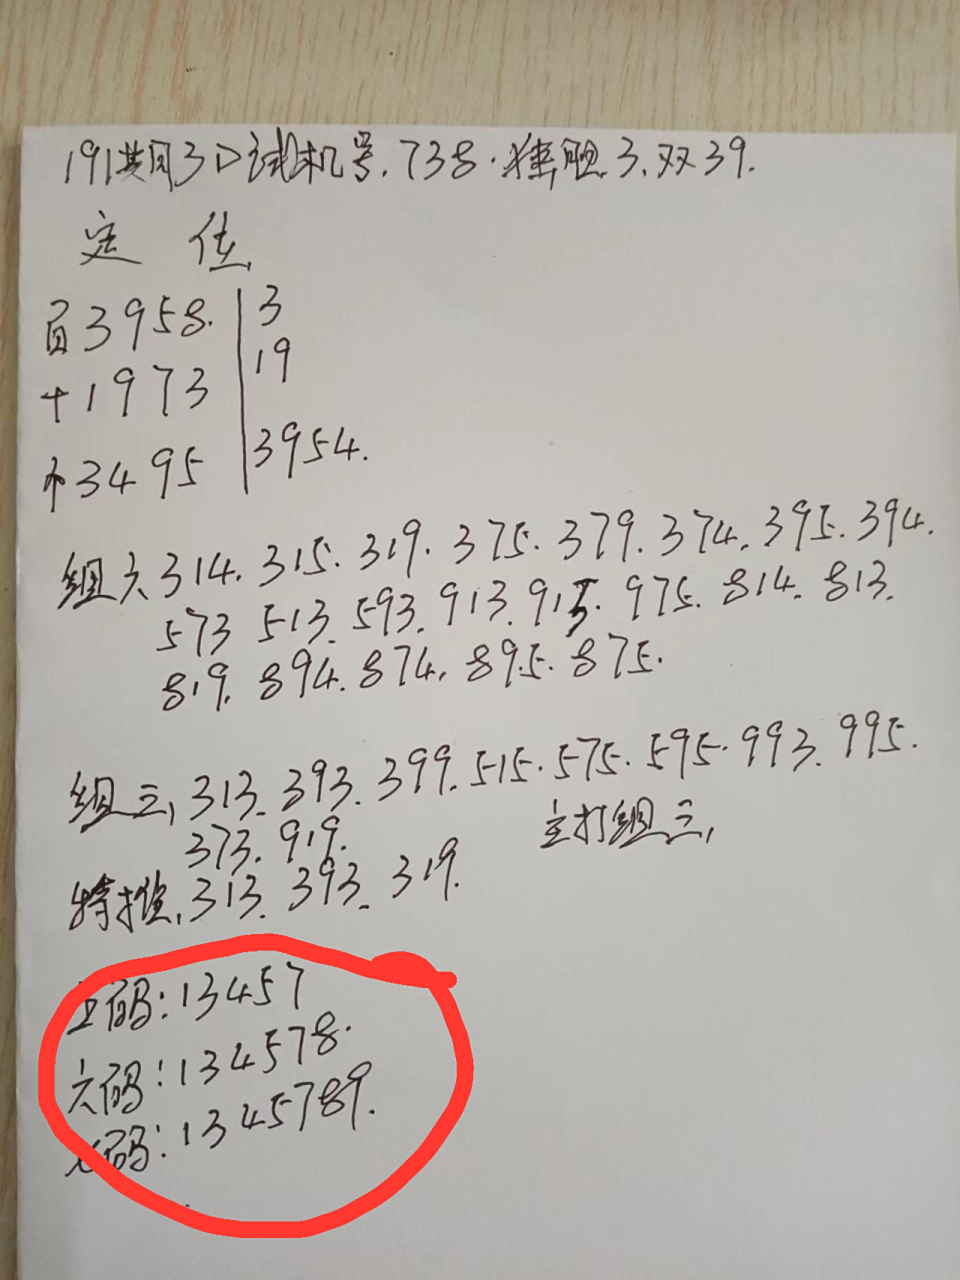 191其月3D试机号.738.独胆.3.双39.
定 位
百3958. 3
十1973 19
个3495 3954.
组六314.315.319.375.379.374.395.394.
573 513.593.913.915.975.814.813.
819.894.874.895.875.
组三,313.393.399.515.575.595.993.995.
373.919. 主打组三,
特推,313.393.319.
五码:13457
六码:134578.
七码:1345789.